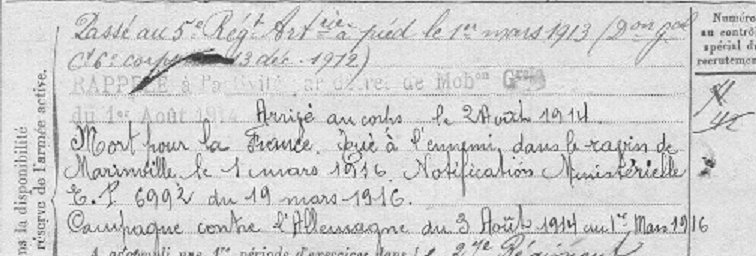 Passé au 5e Régt Artrie à pied le 1er mars 1913 (Don gal
Ct 6e corps 13 déc. 1912)
RAPPELÉ à l'activité par décret de Mobon Grale
du 1er Août 1914 Arrivé au corps le 2 Août 1914.
Mort pour la France. Tué à l'ennemi dans le ravin de
Marinville le 1 mars 1916. Notification Ministérielle
E.P 6992 du 19 mars 1916.
Campagne contre l'Allemagne du 3 Août 1914 au 1er Mars 1916
A accompli une 1re période d'exercices dans le 2 Régiment
Numéro
au contrôle
spécial du
recrutement
ns la disponibilité
réserve de l'armée active.